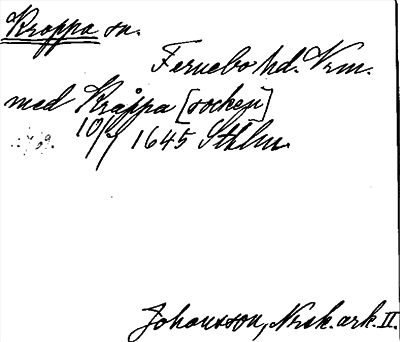 Kroppa sn.
Fernebo hd. Vrm.
med Kråppa [socken]
10/7 1645 Sthlm.
Johansson, Norsk. ark. II.